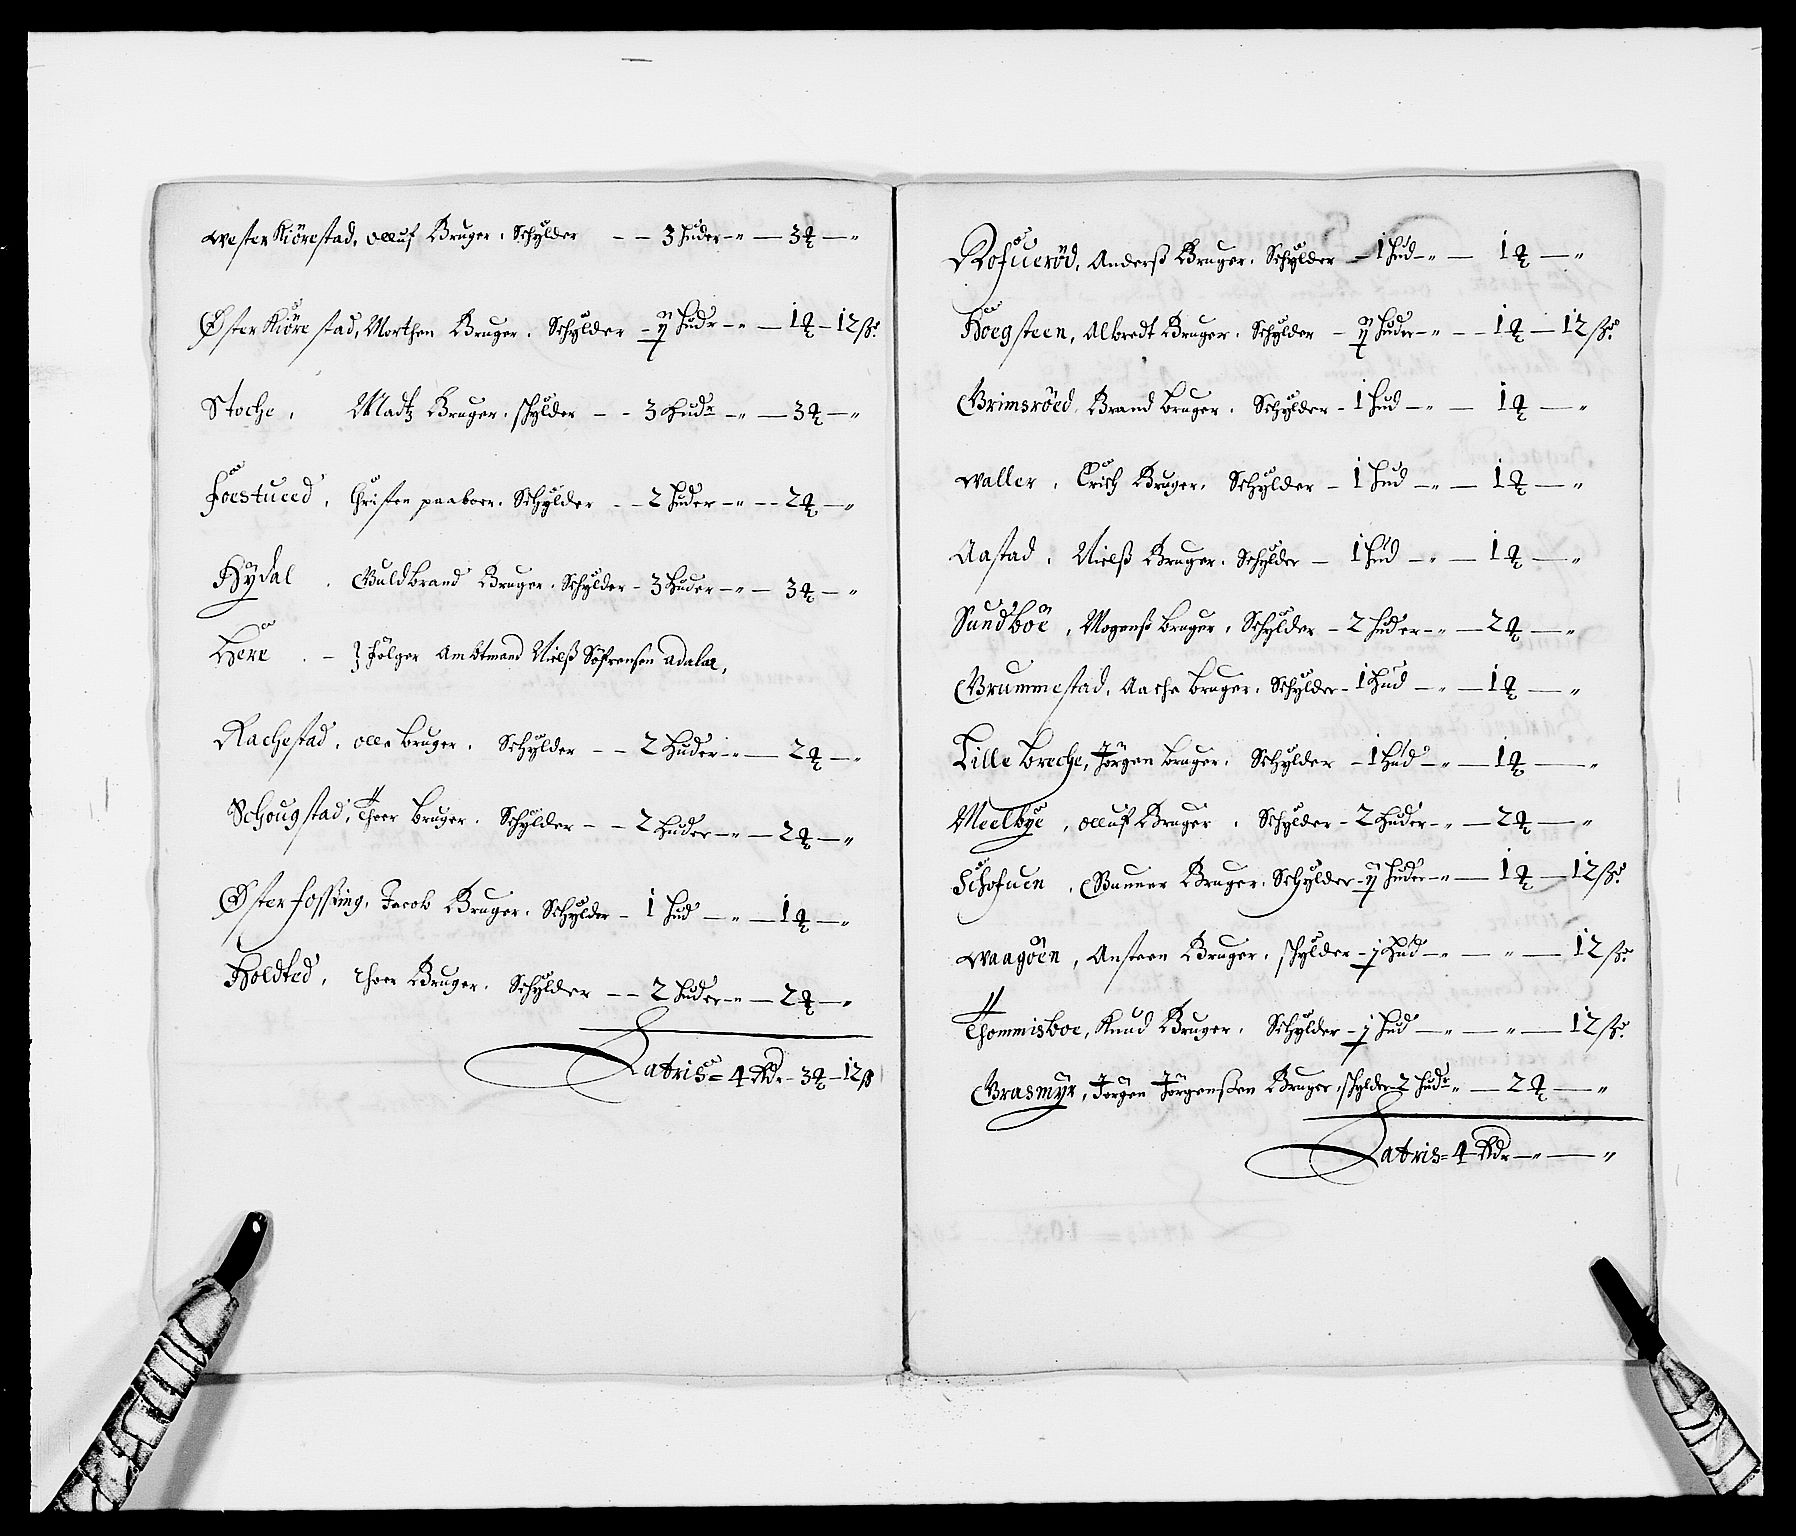 Wester Kiørestad, olluf Bruger, Schylder - - 3 huder - " - 3 ℔ - "
Øster Kiørestad, Morthen Bruger, Schylder - ij hudr - " - 1 ℔ - 12 ß
Stoche, Madtz Bruger, schylder - - 3 Hudr - " - 3 ℔ - "
Foestued, Christen paaboer, Schylder - - 2 huder - " - - 2 ℔ - "
Hydal, Guldbrand Bruger, Schylder - 3 Huder - " - 3 ℔ - "
Here - } følger Ambtmand Nielß Søfrensen
Rachestad, olle bruger, Schylder - - 2 Huder - " - 2 ℔ - "
Schougstad, Thoer bruger, Schylder - - 2 Huder - " - 2 ℔ - "
Øster fossing, Jacob Bruger, Schylder - 1 hud - " - 1 ℔ - "
Holdted, thoer Bruger, Schylder - - 2 huder - " - 2 ℔ - "
Latris = 4 Rdr - 3 ℔ - 12 ß
Rofuerød, Anderß Bruger, Schylder - 1 hud - " - 1 ℔ - "
Høegsteen, Albredt Bruger, Schylder - ij huder - " - - 1 ℔ - 12 ß
Grimsrøed, Brand bruger, Schylder - 1 hud - " - 1 ℔ - "
Waller, Erich Bruger, Schylder - 1 hud - " - 1 ℔ - "
Aastad, Nielß Bruger, Schylder - 1 hud - " - 1 ℔ - "
Sundbøe, Mogenß bruger, Schylder - 2 huder - " - 2 ℔ - "
Grummestad, Aache bruger, Schylder - 1 Hud - " - 1 ℔ - "
Lille breche, Jørgen bruger, Schylder - 1 Hud - " - 1 ℔ - "
Meelbye, olluf Bruger, Schylder - 2 Huder - " - 2 ℔ - "
Schofuen, Gunner Bruger, Schylder - ij huder - " - 1 ℔ - 12 ß
Waagøen, Ansteen Bruger, schylder - j Hud - " - " - 12 ß
Thommisboe, Knud Bruger, Schylder - j hud - " - " - 12 ß
Grasmyr, Jørgen Jørgenßen Bruger, schylder 2 hudr " - 2 ℔ - "
Latris = 4 Rdr - " - "